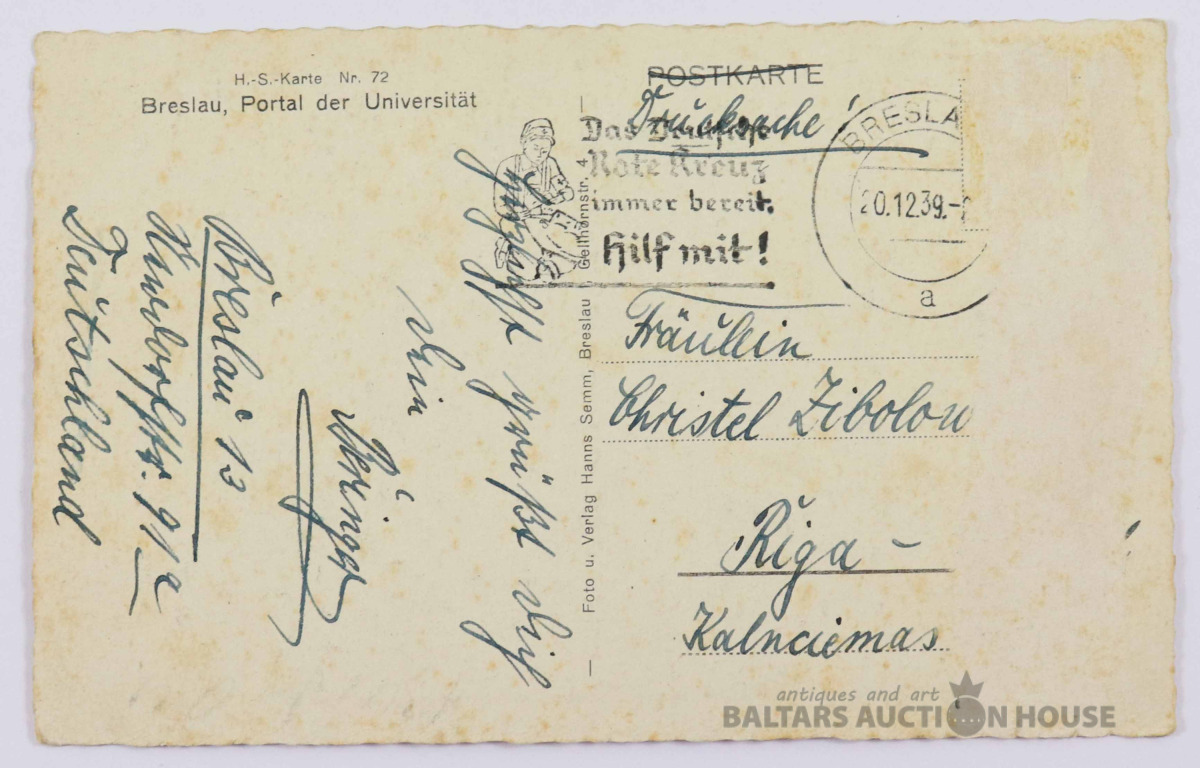 H.-S.-Karte Nr. 72
Breslau, Portal der Universität
POSTKARTE
Drucksache!
Das Deutsche
Rote Kreuz
immer bereit.
Hilf mit!
BRESLA
20.12.39.-
a
Foto u. Verlag Hanns Semm, Breslau Gellhornstr. 4
Fräulein
Christel Zibolou
Riga -
Kalnciemas
grüßt Dich
Dein
Breslau 13
Deutschland
antiques and art
BALTARS AUCTION HOUSE